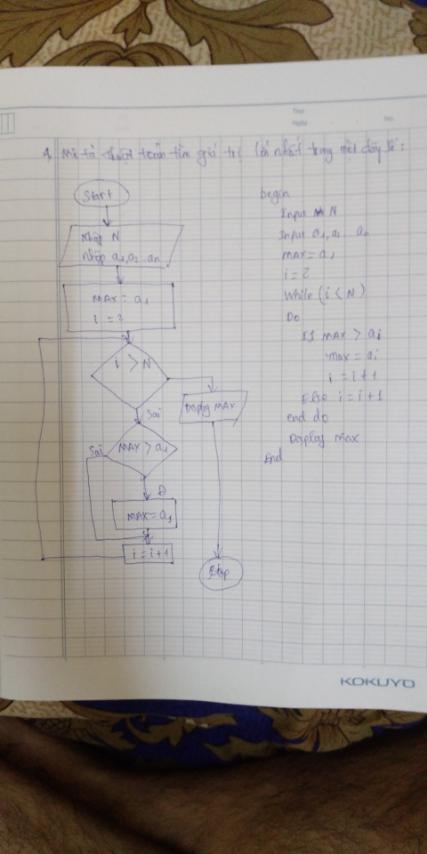 4. Mô tả thuật toán tìm giá trị lớn nhất trong một dãy số:
Start
Nhập N
nhập a1, a2 .. an
MAX = a1
i = 2
i > N
Sai
Display MAX
Sai
MAX > a1
Đ
MAX = a1
i = i+1
Stop
begin
Input N
Input a1, a2 .. an
max = a1
i = 2
While (i < N)
Do
If max > ai
max = ai
i = i+1
Else i = i+1
end do
Display max
End
KOKUYO